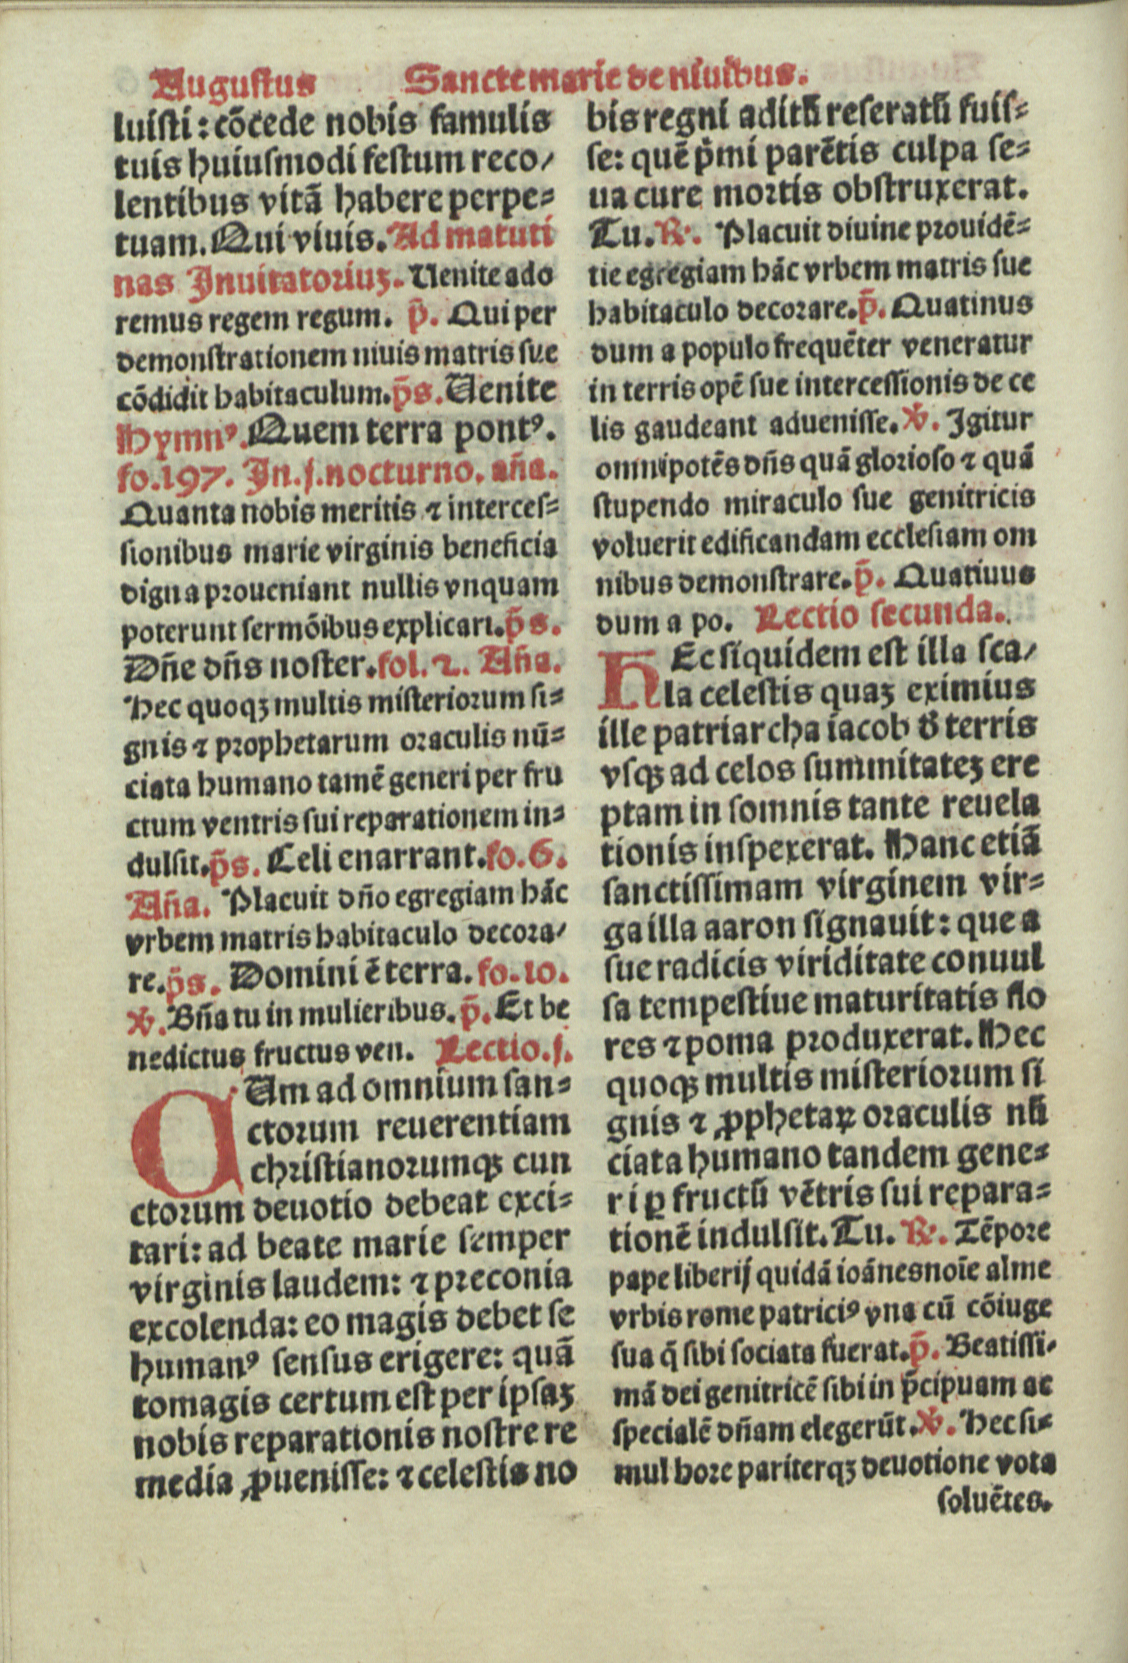 Augustus Sancte marie de niuibus.
luisti: cõcede nobis famulis
tuis huiusmodi festum reco/
lentibus vitã habere perpe=
tuam. Qui viuis. Ad matuti
nas Inuitatoriuʒ. Uenite ado
remus regem regum. p̃. Qui per
demonstrationem niuis matris sue
cõdidit habitaculum. p̃s. Uenite
Hymnꝰ. Quem terra pontꝰ.
fo.197. In.j.nocturno. aña.
Quanta nobis meritis ⁊ interces=
sionibus marie virginis beneficia
digna proueniant nullis vnquam
poterunt sermõibus explicari. p̃s.
Dñe dñs noster. fol.2. Aña.
Hec quoqʒ multis misteriorum si=
gnis ⁊ prophetarum oraculis nũ=
ciata humano tamẽ generi per fru
ctum ventris sui reparationem in=
dulsit. p̃s. Celi enarrant. fo.6.
Aña. Placuit dño egregiam hãc
vrbem matris habitaculo decora/
re. p̃s. Domini ẽ terra. fo.10.
℣. Bña tu in mulieribus. p̃. Et be
nedictus fructus ven. Lectio.j.
CUm ad omnium san=
ctorum reuerentiam
christianorumqʒ cun
ctorum deuotio debeat exci=
tari: ad beate marie semper
virginis laudem: ⁊ preconia
excolenda: eo magis debet se
humanꝰ sensus erigere: quã
tomagis certum est per ipsaʒ
nobis reparationis nostre re
media ꝓuenisse: ⁊ celestis no
bis regni aditũ reseratũ fuis=
se: quẽ p̃mi parẽtis culpa se=
ua cure mortis obstruxerat.
Tu. ℟. Placuit diuine prouidẽ=
tie egregiam hãc vrbem matris sue
habitaculo decorare. p̃. Quatinus
dum a populo frequẽter veneratur
in terris opẽ sue intercessionis de ce
lis gaudeant aduenisse. ℣. Igitur
omnipotẽs dñs quã glorioso ⁊ quã
stupendo miraculo sue genitricis
voluerit edificandam ecclesiam om
nibus demonstrare. p̃. Quatiuus
dum a po. Lectio secunda.
HEc siquidem est illa sca/
la celestis quaʒ eximius
ille patriarcha iacob đ terris
vsqʒ ad celos summitateʒ ere
ptam in somnis tante reuela
tionis inspexerat. Hanc etiã
sanctissimam virginem vir=
ga illa aaron signauit: que a
sue radicis viriditate conuul
sa tempestiue maturitatis flo
res ⁊ poma produxerat. Hec
quoqʒ multis misteriorum si
gnis ⁊ ꝓphetaꝝ oraculis nũ
ciata humano tandem gene=
ri ꝑ fructũ vẽtris sui repara=
tionẽ indulsit. Tu. ℟. Tẽpore
pape liberij quidã ioãnes noĩe alme
vrbis rome patriciꝰ vna cũ cõiuge
sua q̃ sibi sociata fuerat. p̃. Beatissi=
mã dei genitricẽ sibi in p̃cipuam ac
specialẽ dñam elegerũt. ℣. Hec si=
mul hore pariterqʒ deuotione vota
soluẽtes.